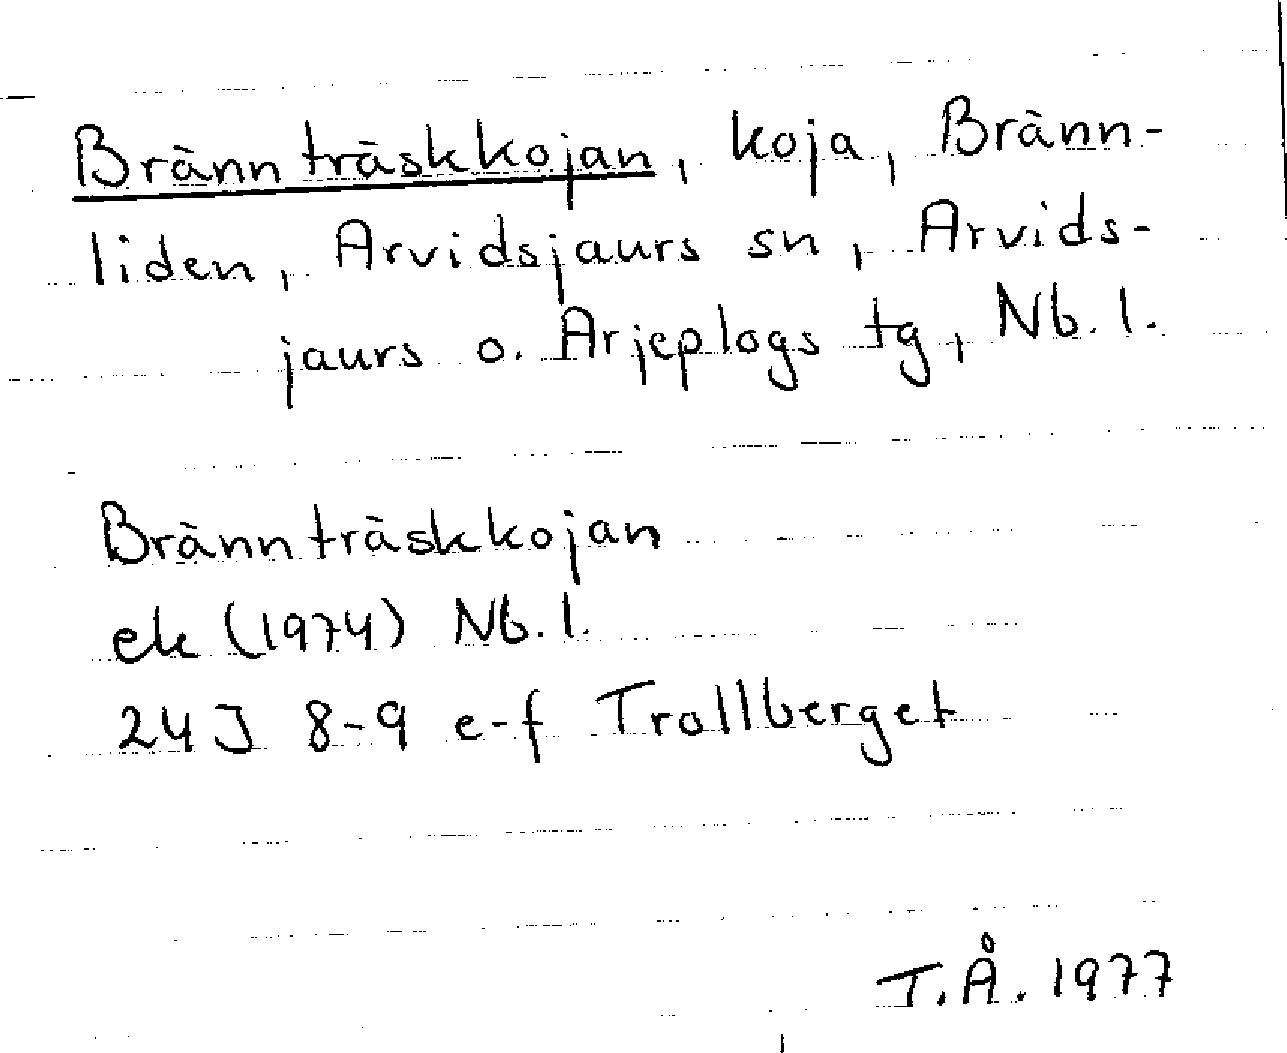 Brännträskkojan, koja, Bränn-
liden, Arvidsjaurs sn, Arvids-
jaurs o. Arjeplogs tg, Nb. l.
Brännträskkojan
ek (1974) Nb. l.
24J 8-9 e-f Trollberget
T.Å. 1977